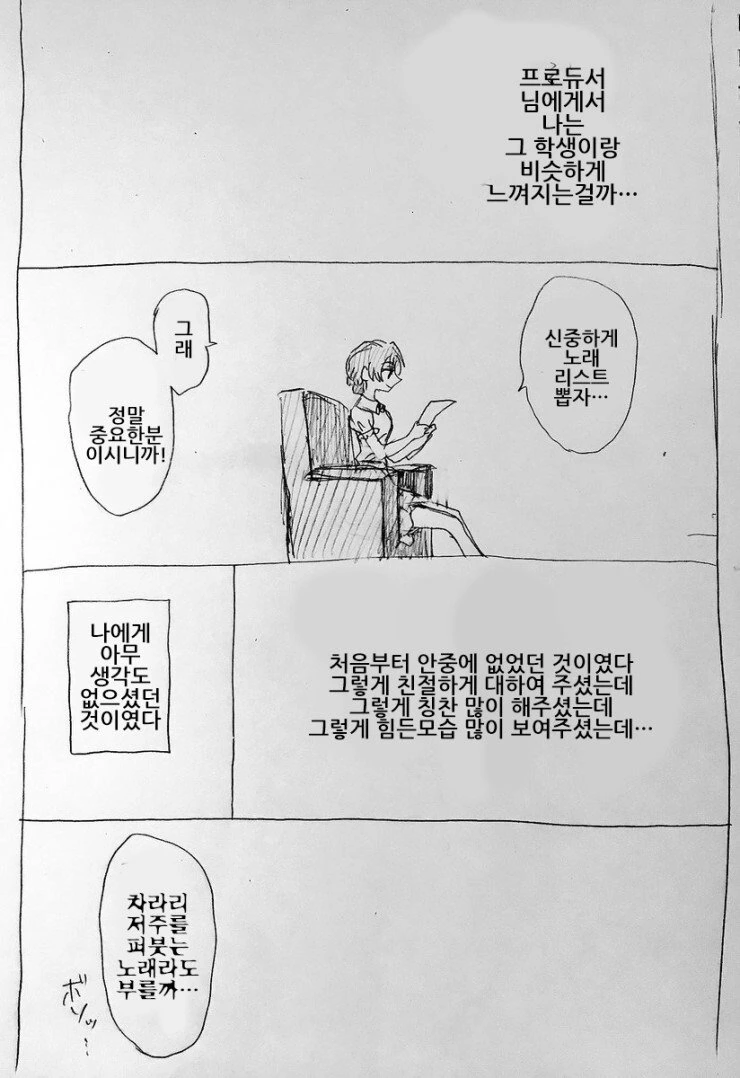 프로듀서
님에게서
나는
그 학생이랑
비슷하게
느껴지는걸까…
신중하게
노래
리스트
뽑자…
그
래
정말
중요한분
이시니까!
처음부터 안중에 없었던 것이였다
그렇게 친절하게 대하여 주셨는데
그렇게 칭찬 많이 해주셨는데
그렇게 힘든모습 많이 보여주셨는데…
나에게
아무
생각도
없으셨던
것이였다
차라리
저주를
퍼붓는
노래라도
부를까…
ボソッ…